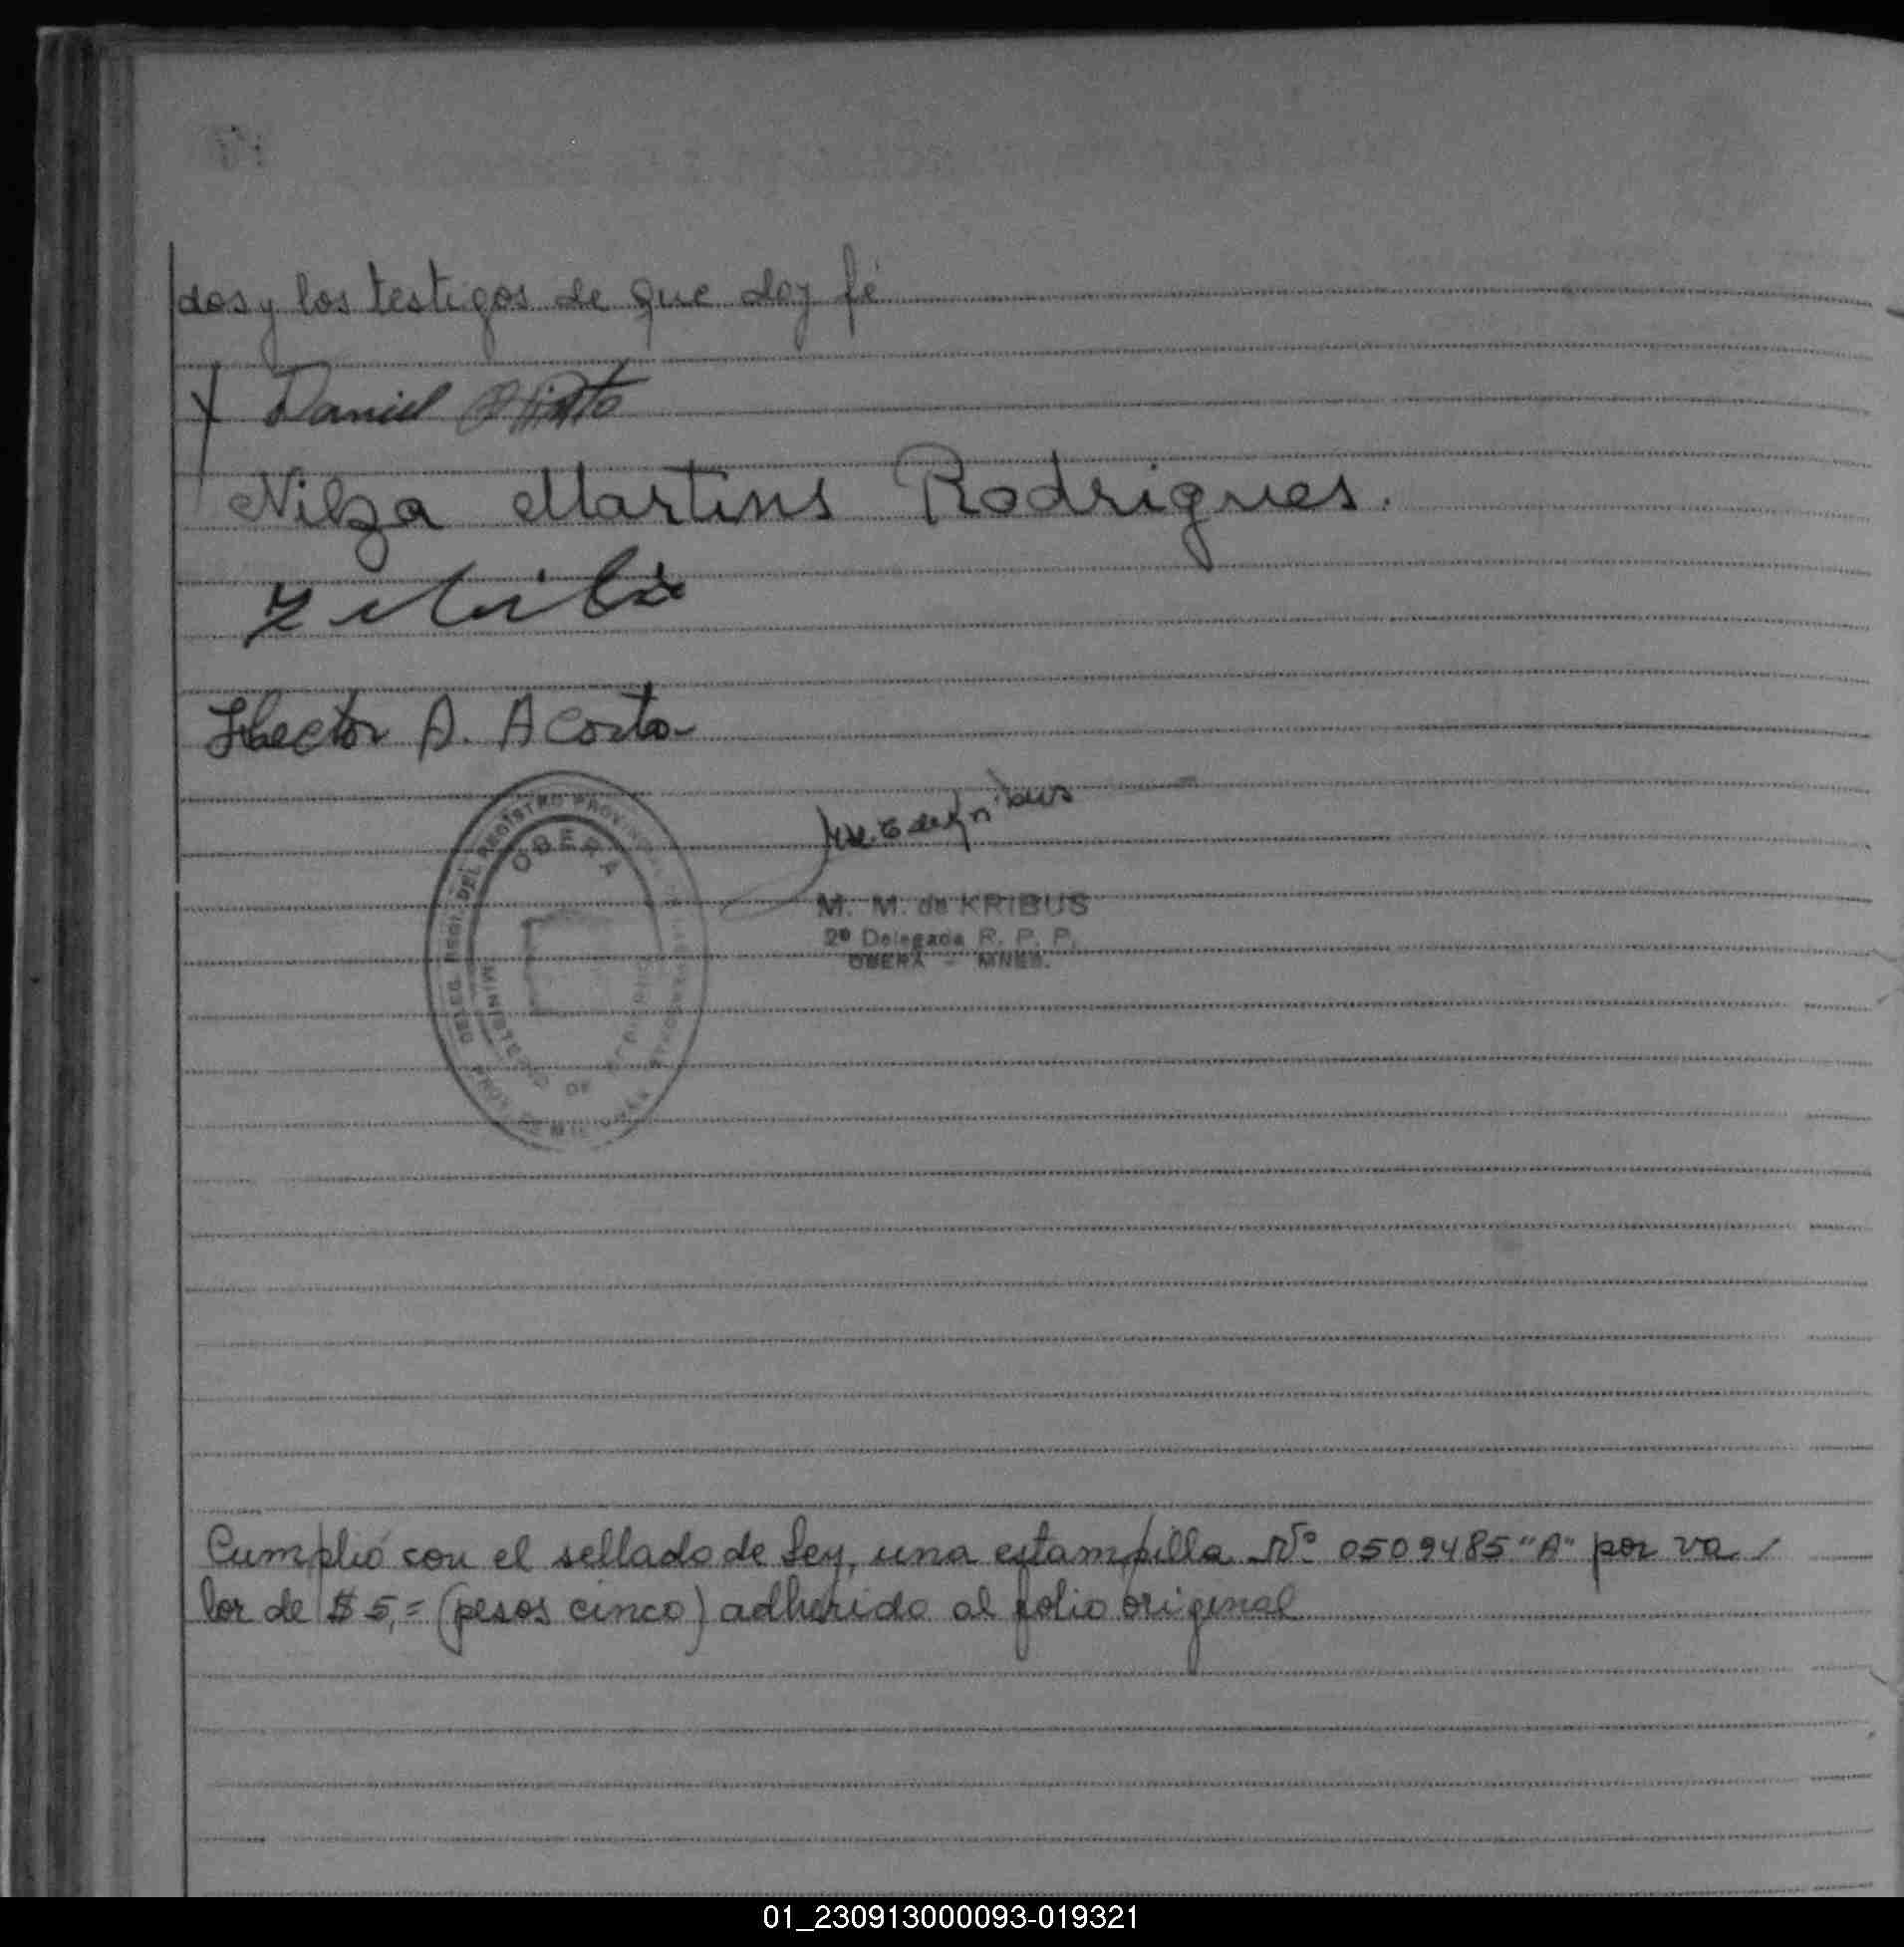 dos y los testigos de que doy fé
Daniel Pinto
Nilza Martins Rodrigues.
Hector A. Acosta
DELEG. DEL REGISTRO PROVINCIAL
OBERA
MINISTERIO DE
M. M. de KRIBUS
2º Delegada R. P. P.
OBERA - MNES.
Cumplió con el sellado de Ley, una estampilla Nº 0509485 "A" por va/
lor de $ 5,= (pesos cinco) adherido al folio original
01_230913000093-019321